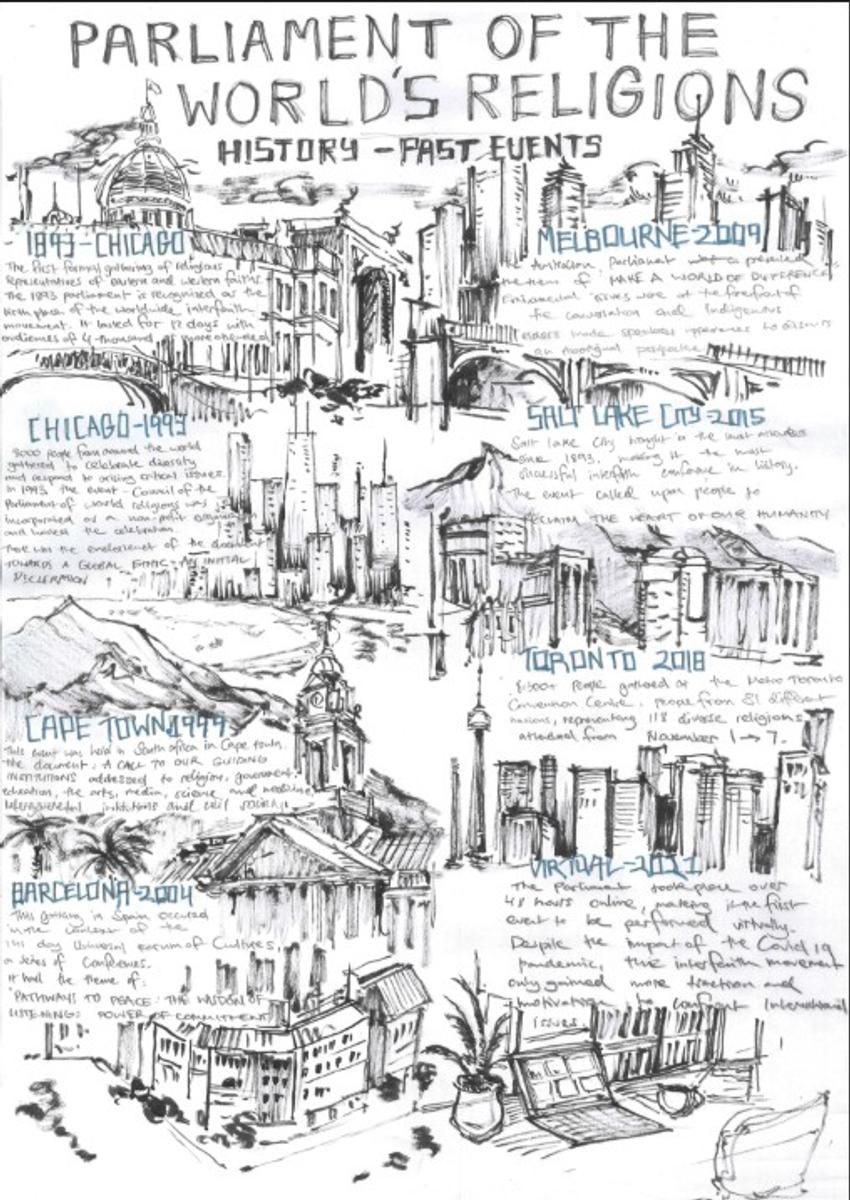 PARLIAMENT OF THE
WORLD'S RELIGIONS
HISTORY - PAST EVENTS
1893-CHICAGO
The first formal gathering of religious
Representatives of Eastern and western faiths.
The 1893 parliament is recognised as the
birth place of the worldwide interfaith
movement. It lasted for 17 days with
audiences of 4-thousand
CHICAGO-1993
8000 people from around the world
gathered to celebrate diversity
and respond to arising critical issues.
In 1993, the event - Council of the
Parliament of world religions was
Incorporated as a non-profit
and hosted the celebration.
There was the endorsement of the document
TOWARDS A GLOBAL ETHIC: AN INITIAL
DECLERATION
CAPE TOWN 1999
This event was held in South africa in Cape town.
the document: A CALL TO OUR GUIDING
INSTITUTIONS addressed to religion, government,
education, the arts, media, science and medicine,
institutions and civil society.
BARCELONA-2004
This gathering in Spain occured
in the context of the
141 day Universal Forum of Cultures,
a series of Conferences.
It had the theme of:
'PATHWAYS TO PEACE: THE WISDOM OF
LISTENING: POWER OF COMMITMENT
MELBOURNE-2009
The Australian Parliament
the theme of MAKE A WORLD OF DIFFERENCE
issues were at the forefront of
the conversation and Indigenous
elders made speakers to discuss
an Aboriginal perspective
SALT LAKE CITY-2015
Salt lake City brought in the most attendees
since 1893, making it the most
successful interfaith conference in history.
The event called upon people to
RECLAIM THE HEART OF OUR HUMANITY
TORONTO 2018
8,500+ people gathered at the Metro Toronto
Convention Centre. people from 81 different
nations, representing 118 diverse religions
attended from November 1 → 7.
VIRTUAL-2021
The Parliament took place over
48 hours online, making it the first
event to be performed virtually.
Despite the impact of the Covid 19
pandemic, the interfaith movement
only gained more traction and
motivation to confront International
Issues.